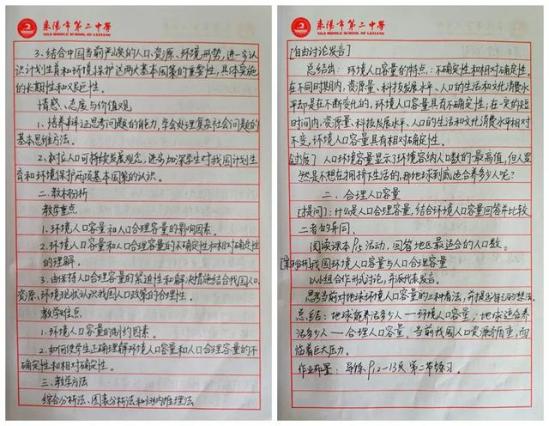 耒阳市第二中学
NO.2 MIDDLE SCHOOL OF LEIYANG
3、结合中国当前严峻的人口、资源、环境形势,进一步认
识计划生育和环境保护这两大基本国策的重要性,具体实施
的长期性和艰巨性。
情感、态度与价值观
1、培养辩证思考问题的能力,学会处理复杂社会问题的
基本思维方法。
2、树立人口可持续发展观念,进步加深学生对我国计划生
育和环境保护两项基本国策的认识。
二、教材分析
教学重点
1、环境人口容量和人口合理容量的影响因素。
2、环境人口容量和人口合理容量的不确定性和相对确定性
的理解。
3、由保持人口合理容量的紧迫性和解决措施结合我国人口、
资源、环境现状认识我国人口政策的合理性。
教学难点
1、环境人口容量的制约因素。
2、如何使学生正确理解环境人口容量和人口合理容量的不
确定性和相对确定性。
三、教学方法
综合分析法、图表分析法和归纳推理法
耒阳市第二中学
NO.2 MIDDLE SCHOOL OF LEIYANG
[自由讨论发言]
总结出:环境人口容量的特点:不确定性和相对确定性。
在不同时期内,资源量、科技发展水平、人口的生活和文化消费水
平却是在不断变化的,环境人口容量具有不确定性;在一定的短
时间内,资源量、科技发展水平、人口的生活和文化消费水平相对
不变,环境人口容量具有相对确定性。
[过渡]人口环境容量显示了环境容纳人口数的最高值,但人类
然是不想在拥挤下生活的,那地球到底适合养多少人呢?
二、合理人口容量
[提问]:什么是人口合理容量,结合环境人口容量回答并比较
二者的异同。
阅读课本P15活动,回答地区最适合的人口数。
我国环境人口容量与人口合理容量
以小组合作形式讨论,并派代表发言。
思考当前对地球环境人口容量的三种看法,并提出自己的想法。
总结:地球能养活多少人——环境人口容量,地球适合养
活多少人——合理人口容量,当前我国人口资源
临着巨大压力。
作业布置:导练P12-13页第二节练习。